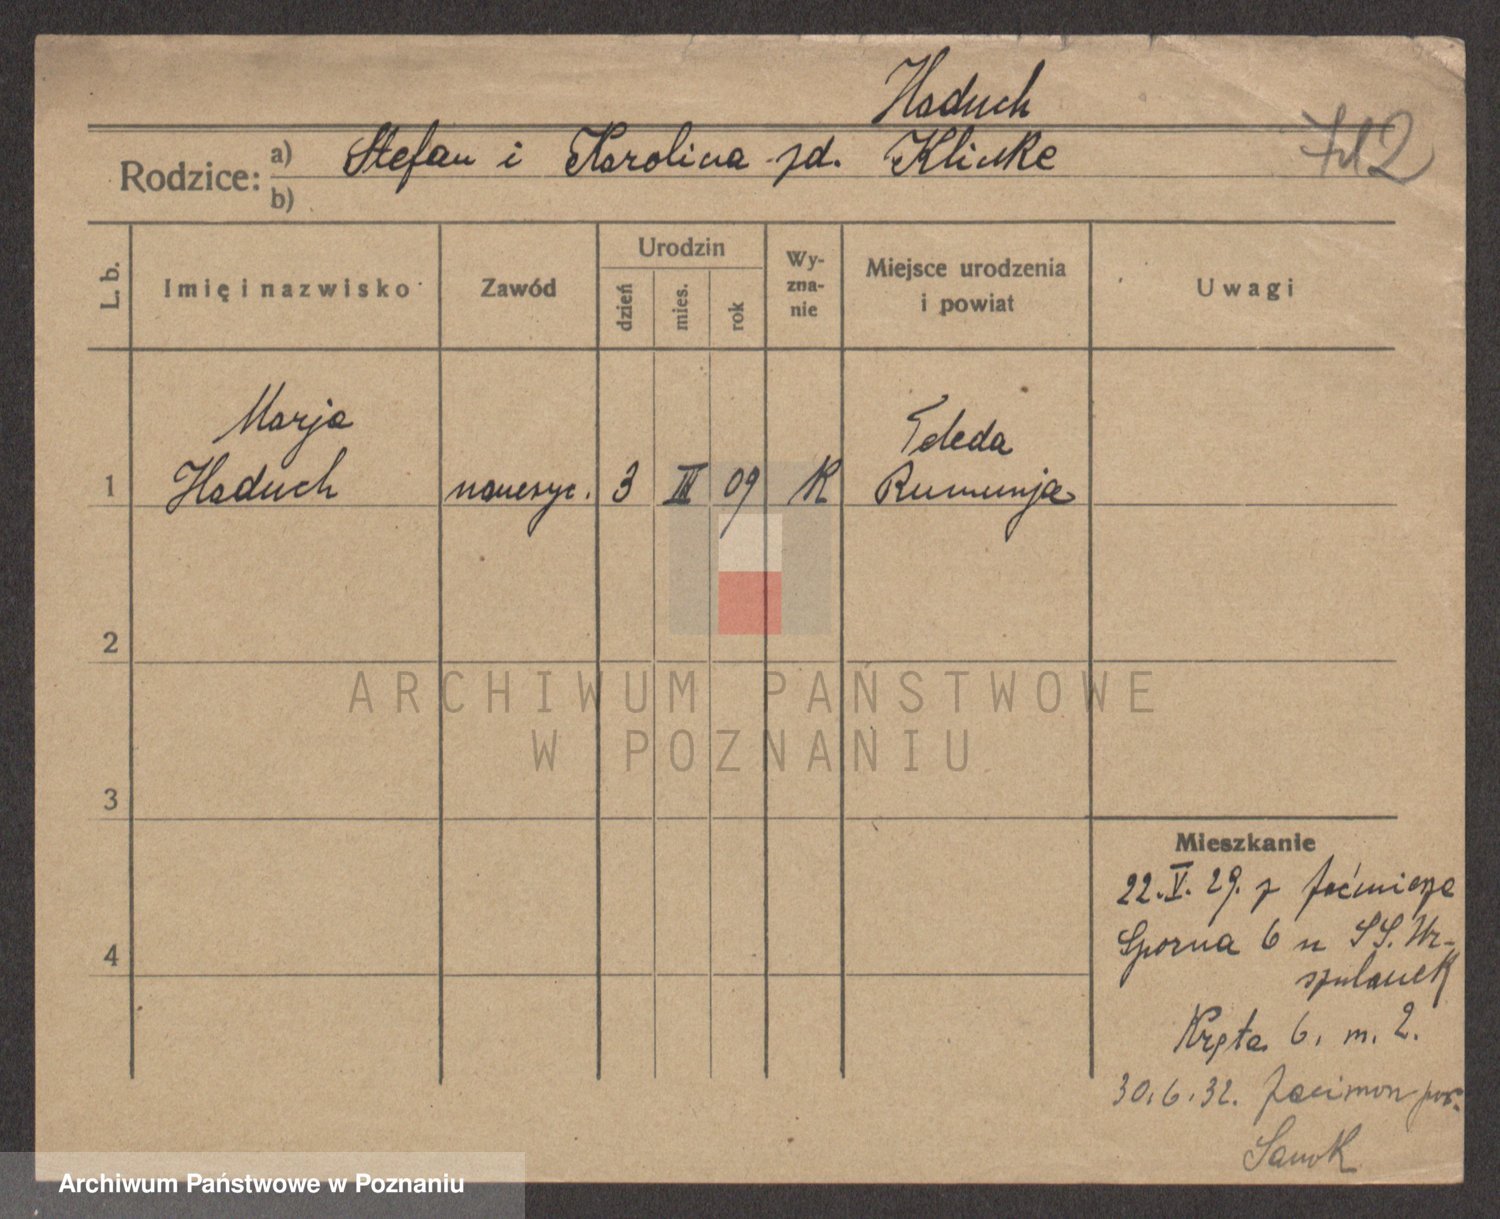 Haduch
Rodzice: a) Stefan i Karolina zd. Klimke
b)
L. b. Imię i nazwisko Zawód Urodzin dzień mies. rok Wy-zna-nie Miejsce urodzenia i powiat Uwagi
Marja Teleda
1 Haduch nauczyc. 3 III 09 K Rumunja
2
ARCHIWUM PAŃSTWOWE
W POZNANIU
3
Mieszkanie
22.V.29. z Jaćmierza
Sporna 6 u SS. Ur-
4
szulanek
Kręta 6. m. 2.
30.6.32. pow.
Sanok
Archiwum Państwowe w Poznaniu